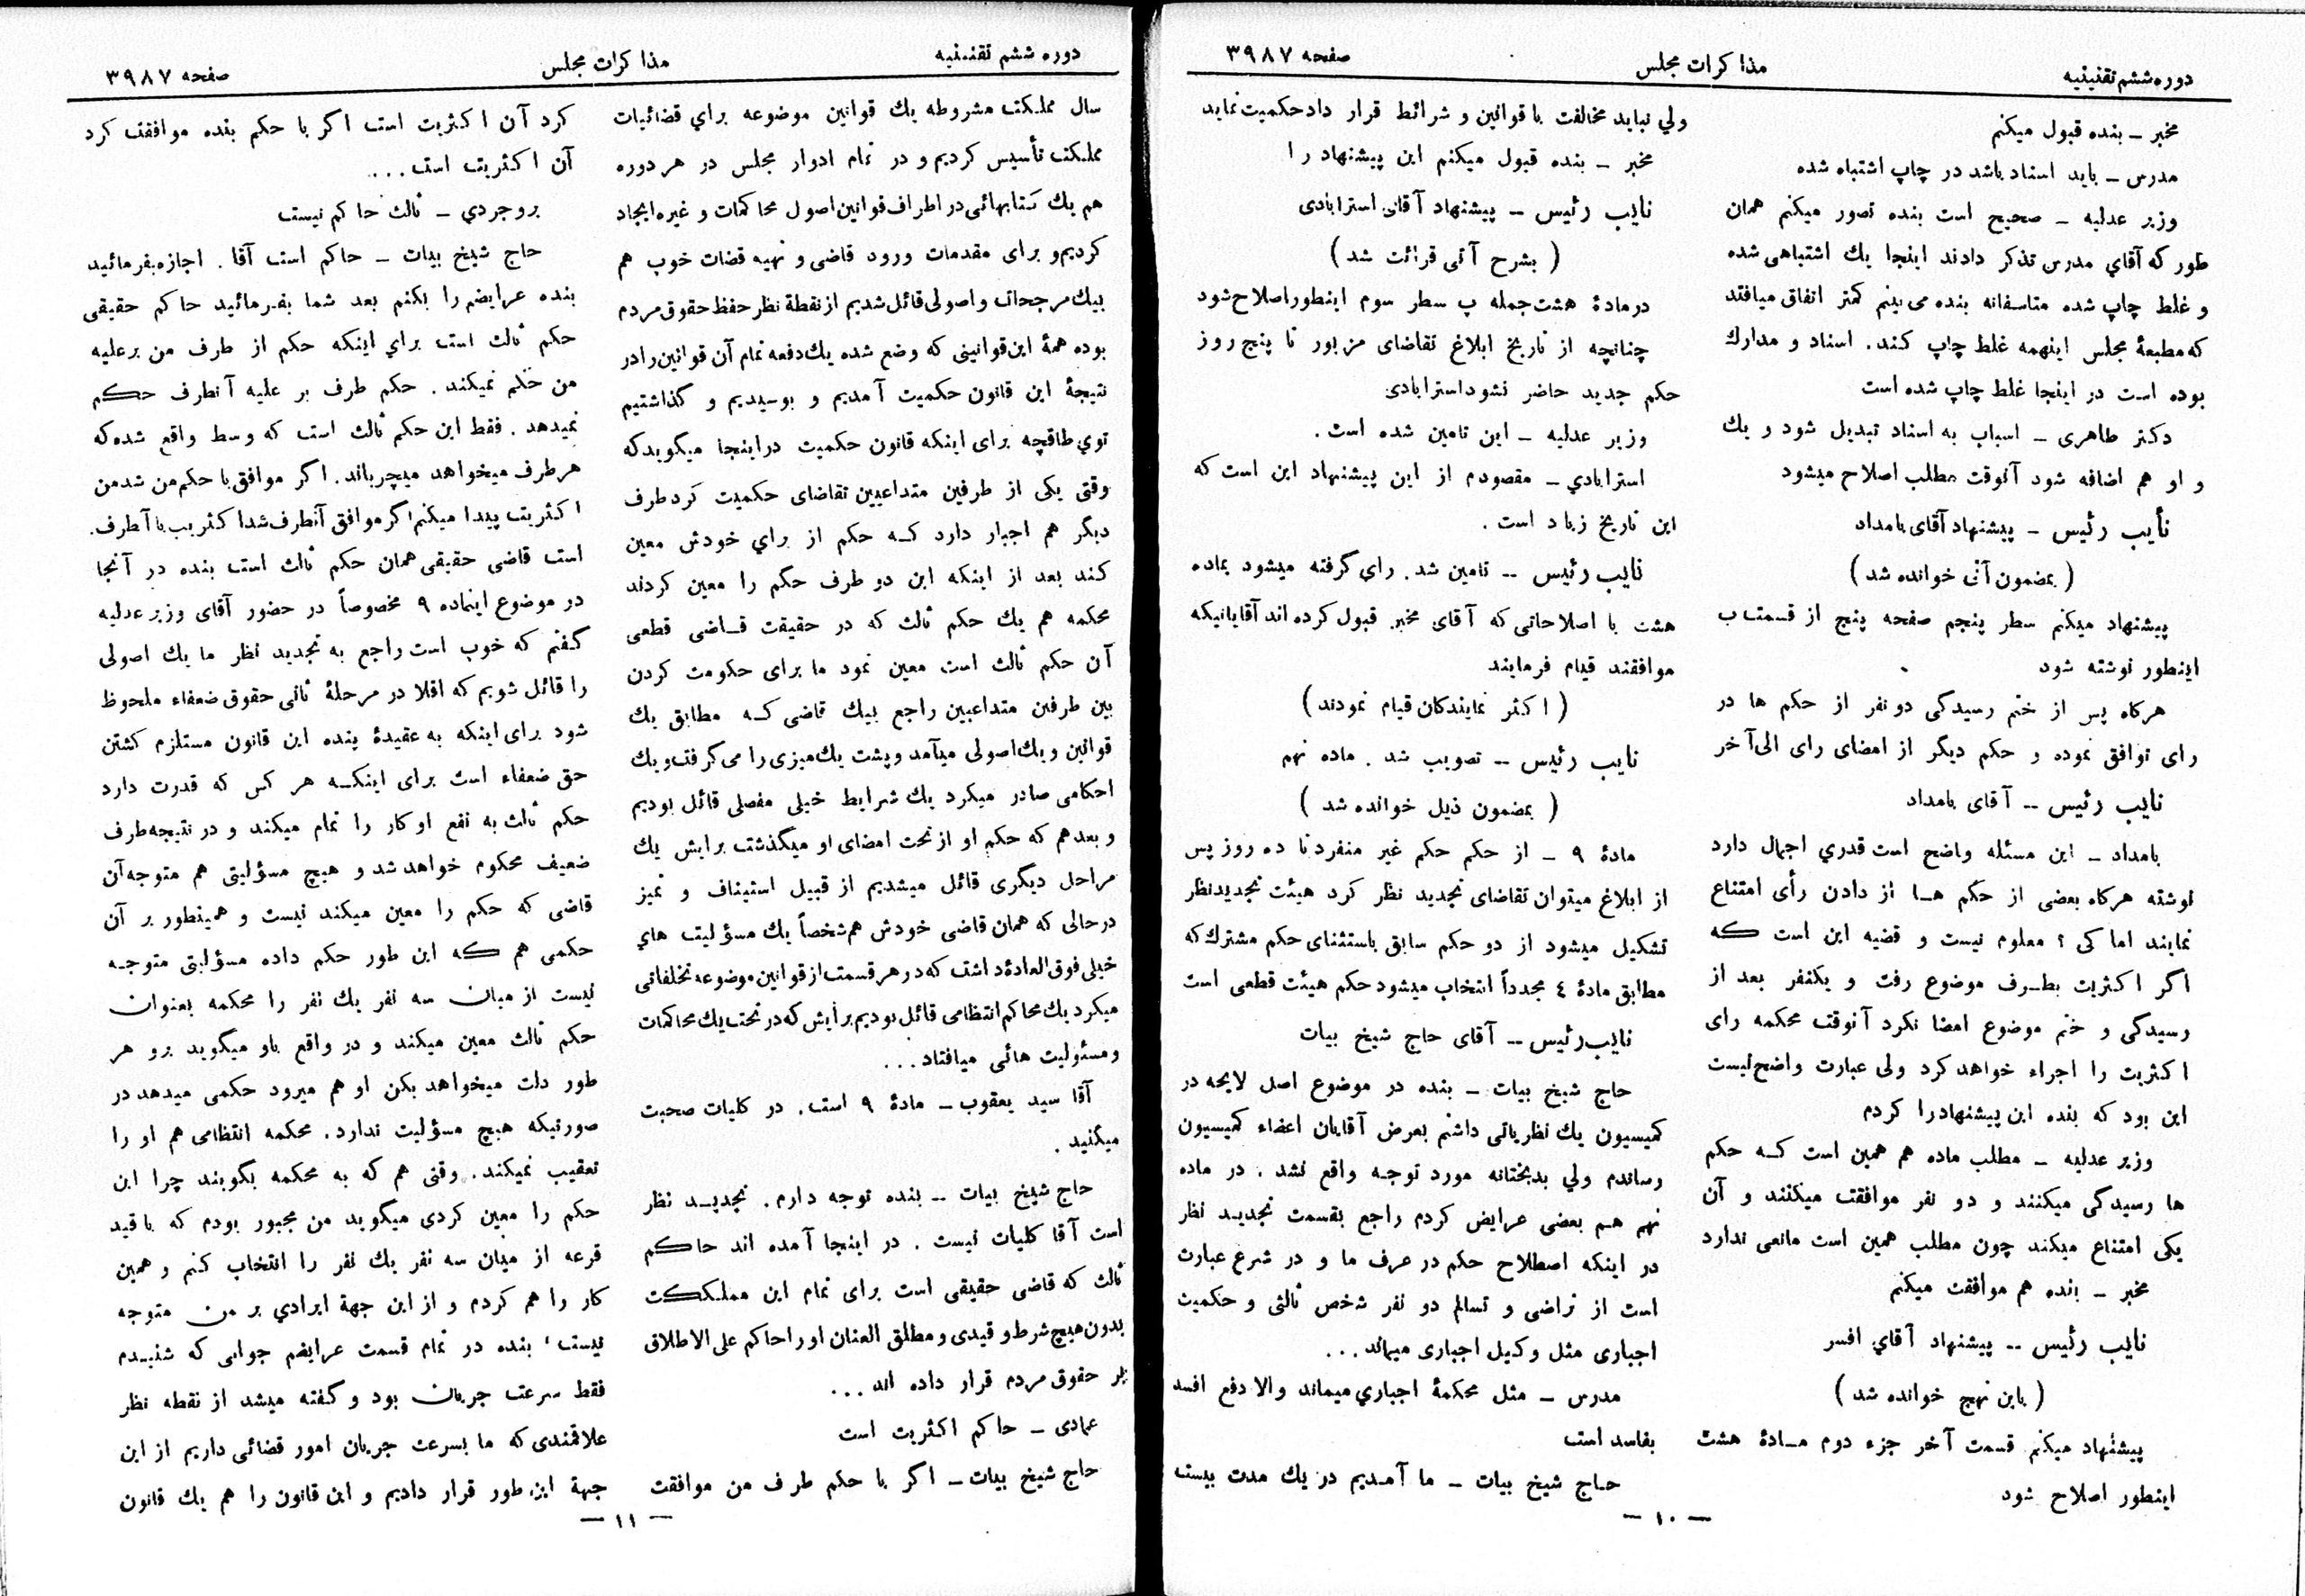 دوره ششم تقنینیه
مذاکرات مجلس
صفحه ۳۹۸۷
مخبر ــ بنده قبول میکنم
مدرس ــ باید اسناد باشد در چاپ اشتباه شده
وزیر عدلیه ــ صحیح است بنده تصور میکنم همان
طور که آقاي مدرس تذکر دادند اینجا یك اشتباهی شده
و غلط چاپ شده متاسفانه بنده می بینم کمتر اتفاق میافتد
که مطبعهٔ مجلس اینهمه غلط چاپ کند . اسناد و مدارك
بوده است در اینجا غلط چاپ شده است
دکتر طاهری ــ اسباب به اسناد تبدیل شود و یك
و او هم اضافه شود آنوقت مطلب اصلاح میشود
نایب رئیس ــ پیشنهاد آقای بامداد
( بمضمون آتی خوانده شد )
پیشنهاد میکنم سطر پنجم صفحه پنج از قسمت ب
اینطور نوشته شود
هرکاه پس از ختم رسیدکی دو نفر از حکم ها در
رای توافق نموده و حکم دیگر از امضای رای الی آخر
نایب رئیس ــ آقای بامداد
بامداد ــ این مسئله واضح است قدري اجمال دارد
نوشته هرکاه بعضی از حکم هـا از دادن رأی امتناع
نمایند اما کی ؟ معلوم نیست و قضیه این است که
اکر اکثریت بطـرف موضوع رفت و یکنفر بعد از
رسیدکی و ختم موضوع امضا نکرد آنوقت محکمه رای
اکثریت را اجراء خواهد کرد ولی عبارت واضح نیست
این بود که بنده این پیشنهاد را کردم
وزیر عدلیه ــ مطلب ماده هم همین است کـه حکم
ها رسیدکی میکنند و دو نفر موافقت میکنند و آن
یکی امتناع میکند چون مطلب همین است مانعی ندارد
مخبر ــ بنده هم موافقت میکنم
نایب رئیس ــ پیشنهاد آقاي افسر
( باین نهج خوانده شد )
پیشنهاد میکنم قسمت آخر جزء دوم مـادهٔ هشت
اینطور اصلاح شود
ولي نباید مخالفت با قوانین و شرائط قرار داد حکمیت نماید
مخبر ــ بنده قبول میکنم این پیشنهاد را
نایب رئیس ــ پیشنهاد آقای استرابادی
( بشرح آتی قرائت شد )
در مادهٔ هشت جمله پ سطر سوم اینطور اصلاح شود
چنانچه از تاریخ ابلاغ تقاضای مزبور تا پنج روز
حکم جدید حاضر نشود استرابادی
وزیر عدلیه ــ این تامین شده است .
استرابادي ــ مقصودم از این پیشنهاد این است که
این تاریخ زیاد است .
نایب رئیس ــ تامین شد . راي گرفته میشود بماده
هشت با اصلاحاتی که آقای مخبر قبول کرده اند آقایانیکه
موافقند قیام فرمایند
( اکثر نمایندکان قیام نمودند )
نایب رئیس ــ تصویب شد . ماده نهم
( بمضمون ذیل خوانده شد )
مادهٔ ۹ ــ از حکم حکم غیر منفرد تا ده روز پس
از ابلاغ میتوان تقاضای تجدید نظر کرد هیئت تجدیدنظر
تشکیل میشود از دو حکم سابق باستثنای حکم مشترك که
مطابق مادهٔ ٤ مجدداً انتخاب میشود حکم هیئت قطعی است
نایب رئیس ــ آقای حاج شیخ بیات
حاج شیخ بیات ــ بنده در موضوع اصل لایحه در
کمیسیون یك نظریاتی داشتم بعرض آقایان اعضاء کمیسیون
رساندم ولي بدبختانه مورد توجـه واقع نشد . در ماده
نهم هـم بعضی عرایض کردم راجع بقسمت تجدیـد نظر
در اینکه اصطلاح حکم در عرف ما و در شرع عبارت
است از تراضی و تسالم دو نفر شخص ثالثی و حکمیت
اجباری مثل وکیل اجباری میماند . . .
مدرس ــ مثل محکمهٔ اجباري میماند والا دفع افسد
بفاسد است
حـاج شیخ بیات ــ ما آمـدیم در یك مدت بیست
ــ ۱۰ ــ
دوره ششم تقنینیه
مذاکرات مجلس
صفحه ۳۹۸۷
سال مملکت مشروطه یك قوانین موضوعه براي قضائیات
مملکت تأسیس کردیم و در تمام ادوار مجلس در هر دوره
هم یك کتابهائی در اطراف قوانین اصول محاکمات و غیره ایجاد
کردیم و برای مقدمات ورود قاضی و تهیه قضات خوب هم
بیك مرجحات و اصولی قائل شدیم از نقطهٔ نظر حفظ حقوق مردم
بوده همهٔ این قوانینی که وضع شده یك دفعه تمام آن قوانین را در
نتیجهٔ این قانون حکمیت آمدیم و بوسیدیم و گذاشتیم
توي طاقچه برای اینکه قانون حکمیت در اینجا میگوید که
وقتی یکی از طرفین متداعیین تقاضای حکمیت کرد طرف
دیگر هم اجبار دارد کـه حکم از براي خودش معین
کند بعد از اینکه این دو طرف حکم را معین کردند
محکمه هم یك حکم ثالث که در حقیقت قـاضی قطعی
آن حکم ثالث است معین نمود ما برای حکومت کردن
بین طرفین متداعیین راجع بیك قاضی کـه مطابق یك
قوانین و یك اصولی میآمد و پشت یك میزی را می کرفت و یك
احکامی صادر میکرد یك شرایط خیلی مفصلی قائل بودیم
و بعد هم که حکم او از تحت امضای او میگذشت برایش یك
مراحل دیگری قائل میشدیم از قبیل استیناف و تمیز
در حالی که همان قاضی خودش هم شخصاً یك مسؤلیت هاي
خیلی فوق العادهٔ داشت که در هر قسمت از قوانین موضوعه تخلفاتی
میکرد یك محاکم انتظامی قائل بودیم برایش که در تحت یك محاکمات
و مسئولیت هائی میافتاد . . .
آقا سید یعقوب ــ مادهٔ ۹ است . در کلیات صحبت
میکنید .
حاج شیخ بیات ــ بنده توجه دارم . تجدیـد نظر
است آقا کلیات نیست . در اینجا آمده اند حاکم
ثالث که قاضی حقیقی است برای تمام این مملکت
بدون هیچ شرط و قیدی و مطلق العنان او را حاکم علی الاطلاق
بر حقوق مردم قرار داده اند . . .
عمادی ــ حاکم اکثریت است
حاج شیخ بیات ــ اکر با حکم طرف من موافقت
کرد آن اکثریت است اکر با حکم بنده موافقت کرد
آن اکثریت است . . .
بروجردي ــ ثالث حاکم نیست
حاج شیخ بیات ــ حاکم است آقا . اجازه بفرمائید
بنده عرایضم را بکنم بعد شما بفرمائید حاکم حقیقی
حکم ثالث است براي اینکه حکم از طرف من بر علیه
من حکم نمیکند . حکم طرف بر علیه آنطرف حکم
نمیدهد . فقط این حکم ثالث است که وسط واقع شده که
هر طرف میخواهد میچرباند . اکر موافق با حکم من شد من
اکثریت پیدا میکنم اکر موافق آنطرف شد اکثریت با آنطرف
است قاضی حقیقی همان حکم ثالث است بنده در آنجا
در موضوع اینماده ۹ مخصوصاً در حضور آقای وزیر عدلیه
گفتم که خوب است راجع به تجدید نظر ما یك اصولی
را قائل شویم که اقلا در مرحلهٔ ثانی حقوق ضعفاء ملحوظ
شود برای اینکه به عقیدهٔ بنده این قانون مستلزم کشتن
حق ضعفاء است برای اینکـه هر کس که قدرت دارد
حکم ثالث به نفع او کار را تمام میکند و در نتیجه طرف
ضعیف محکوم خواهد شد و هیچ مسؤلیتی هم متوجه آن
قاضی که حکم را معین میکند نیست و همینطور بر آن
حکمی هم که این طور حکم داده مسؤلیتی متوجـه
نیست از میان سه نفر یك نفر را محکمه بعنوان
حکم ثالث معین میکند و در واقع باو میگوید برو هر
طور دلت میخواهد بکن او هم میرود حکمی میدهد در
صورتیکه هیچ مسؤلیت ندارد . محکمه انتظامی هم او را
تعقیب نمیکند . وقتی هم که به محکمه بگویند چرا این
حکم را معین کردی میگوید من مجبور بودم که با قید
قرعه از میان سه نفر یك نفر را انتخاب کنم و همین
کار را هم کردم و از این جههٔ ایرادي بر من متوجه
نیست ، بنده در تمام قسمت عرایضم جوابی که شنیـدم
فقط سرعت جریان بود و گفته میشد از نقطه نظر
علاقمندی که ما بسرعت جریان امور قضائی داریم از این
جههٔ این طور قرار دادیم و این قانون را هم یك قانون
ــ ۱۱ ــ